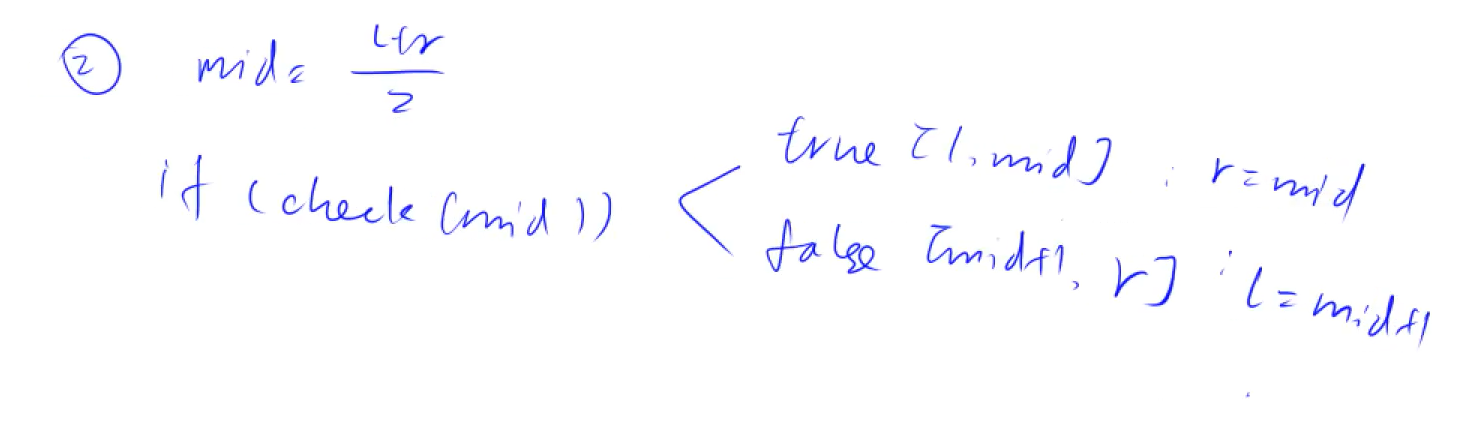 ② mid = (l+r)/2
if (check(mid))
true [l, mid] : r=mid
false [mid+1, r] : l=mid+1